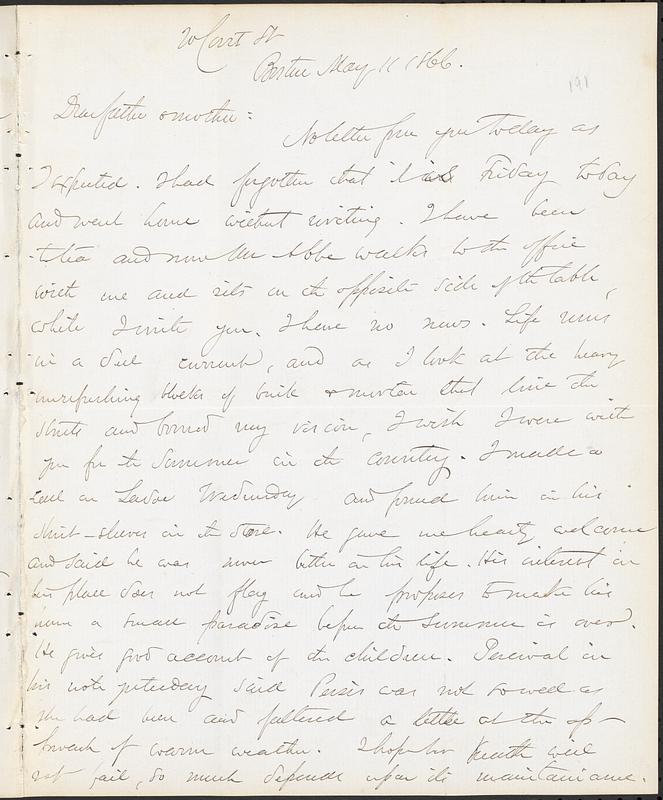 20 Court St
Boston May 11 1866.
191
Dear father & mother:
No letter from you today as
I expected. I had forgotten that it is Friday today
and went home without writing. I have been
to tea and now Mr Abbe walks to the office
with me and sits on the opposite side of the table,
while I write you. I have no news. Life runs
in a dull current, and as I look at the heavy
unrefreshing blocks of brick & mortar that line the
streets and bound my vision, I wish I were with
you for the Summer in the country. I made a
call on Wednesday and found him in his
shirt-sleeves in the store. He gave me hearty welcome
and said he was never better in his life. His interest in
his place does not flag and he proposes to make his
home a small paradise before the Summer is over.
He gives good account of the children. Percival in
his note yesterday said Persis was not so well as
she had been and faltered a little at the ap-
proach of warm weather. I hope her health will
not fail, so much depends upon its maintainance.